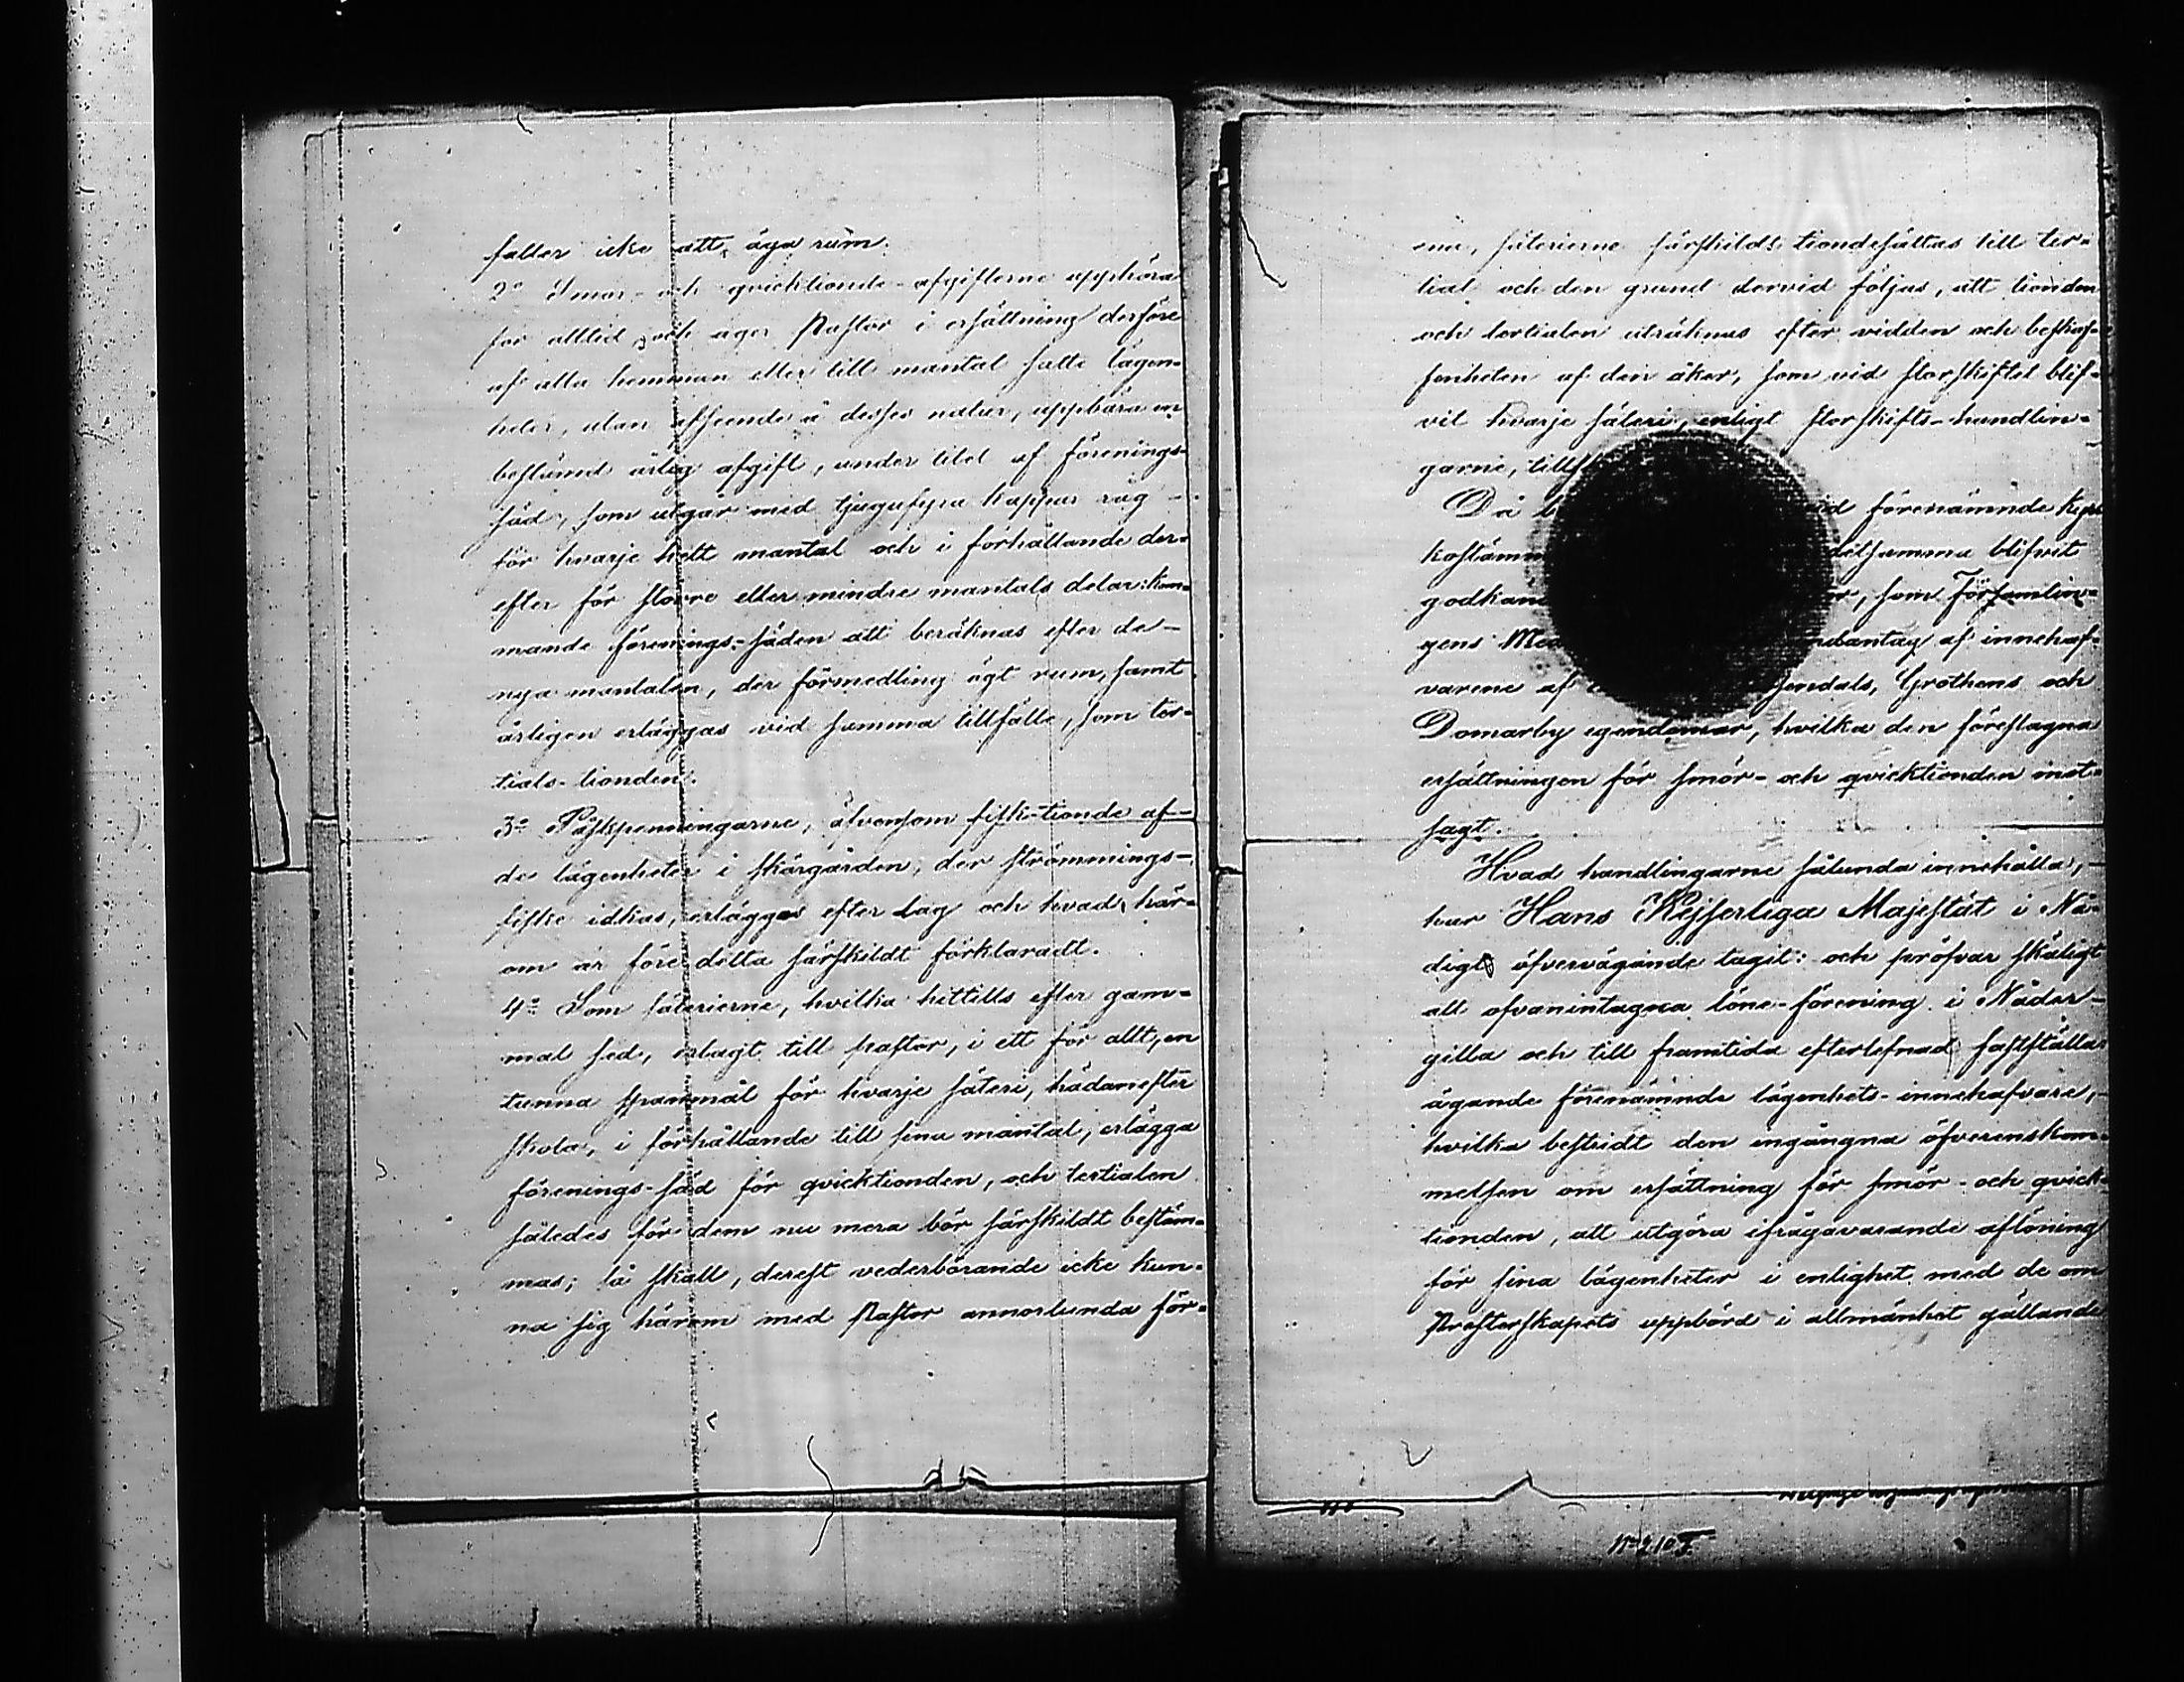 faller icke att äga rum.
2o Smör- och qvicktionde-afgifterne upphöra
för alltid, och äger Pastor i ersättning derföre
af alla hemman eller till mantal satte lägen-
heter, utan afseende å desses natur, uppbära en
bestämd årlig afgift, under titel af förenings-
säd, som utgår med tjugufyra kappar råg –
för hvarje helt mantal och i förhållande der-
efter för större eller mindre mantals delar: kom-
mande förenings-säden att beräknas efter de –
nya mantalen, der förmedling ägt rum, samt
årligen erläggas vid samma tillfälle, som ter-
tials-tionden.
3o Påskpenningarne, äfvensom fisk-tionde af –
de lägenheter i skärgården, der strömmings-
fiske idkas, erlägges efter lag och hvad här-
om är före detta särskildt förklaradt.
4o Som säterierne, hvilka hittills efter gam-
mal sed, erlagt till pastor, i ett för allt, en
tunna spannmål för hvarje säteri, hädanefter
skola, i förhållande till sina mantal, erlägga
förenings-säd för qvicktionden, och tertialen
således för dem nu mera bör särskildt bestäm-
mas; så skall, derest vederbörande icke kun-
na sig härom med Pastor annorlunda för-
ena, säterierne särskildt tiondesättas till ter-
tial och den grund dervid följas, att tionden
och tertialen uträknas efter vidden och beskaf-
fenheten af den åker, som vid storskiftet blif-
vit hvarje säteri, enligt storskifts-handlin-
garne, tills
Då förenämnde Kyr-
kostämm detsamma blifvit
godkän, som Församlin-
gens Med undantag af innehaf-
varene af Grothens och
Domarby egendomar, hvilka den föreslagna
ersättningen för smör- och qvicktionden mot-
sagt.
Hvad handlingarne sålunda innehålla, –
har Hans Kejserliga Majestät i Nå-
digt öfvervägande tagit: och pröfvar skäligt
att ofvanintagna löne-förening i Nåder –
gilla och till framtida efterlefnad fastställa:
ägande förenämnde lägenhets-innehafvare, –
hvilka bestridt den ingångna öfverenskom-
melsen om ersättning för smör- och qvick-
tionden, att utgöra ifrågavarande aflöning
för sina lägenheter i enlighet med de om
Presterskapets uppbörd i allmänhet gällande